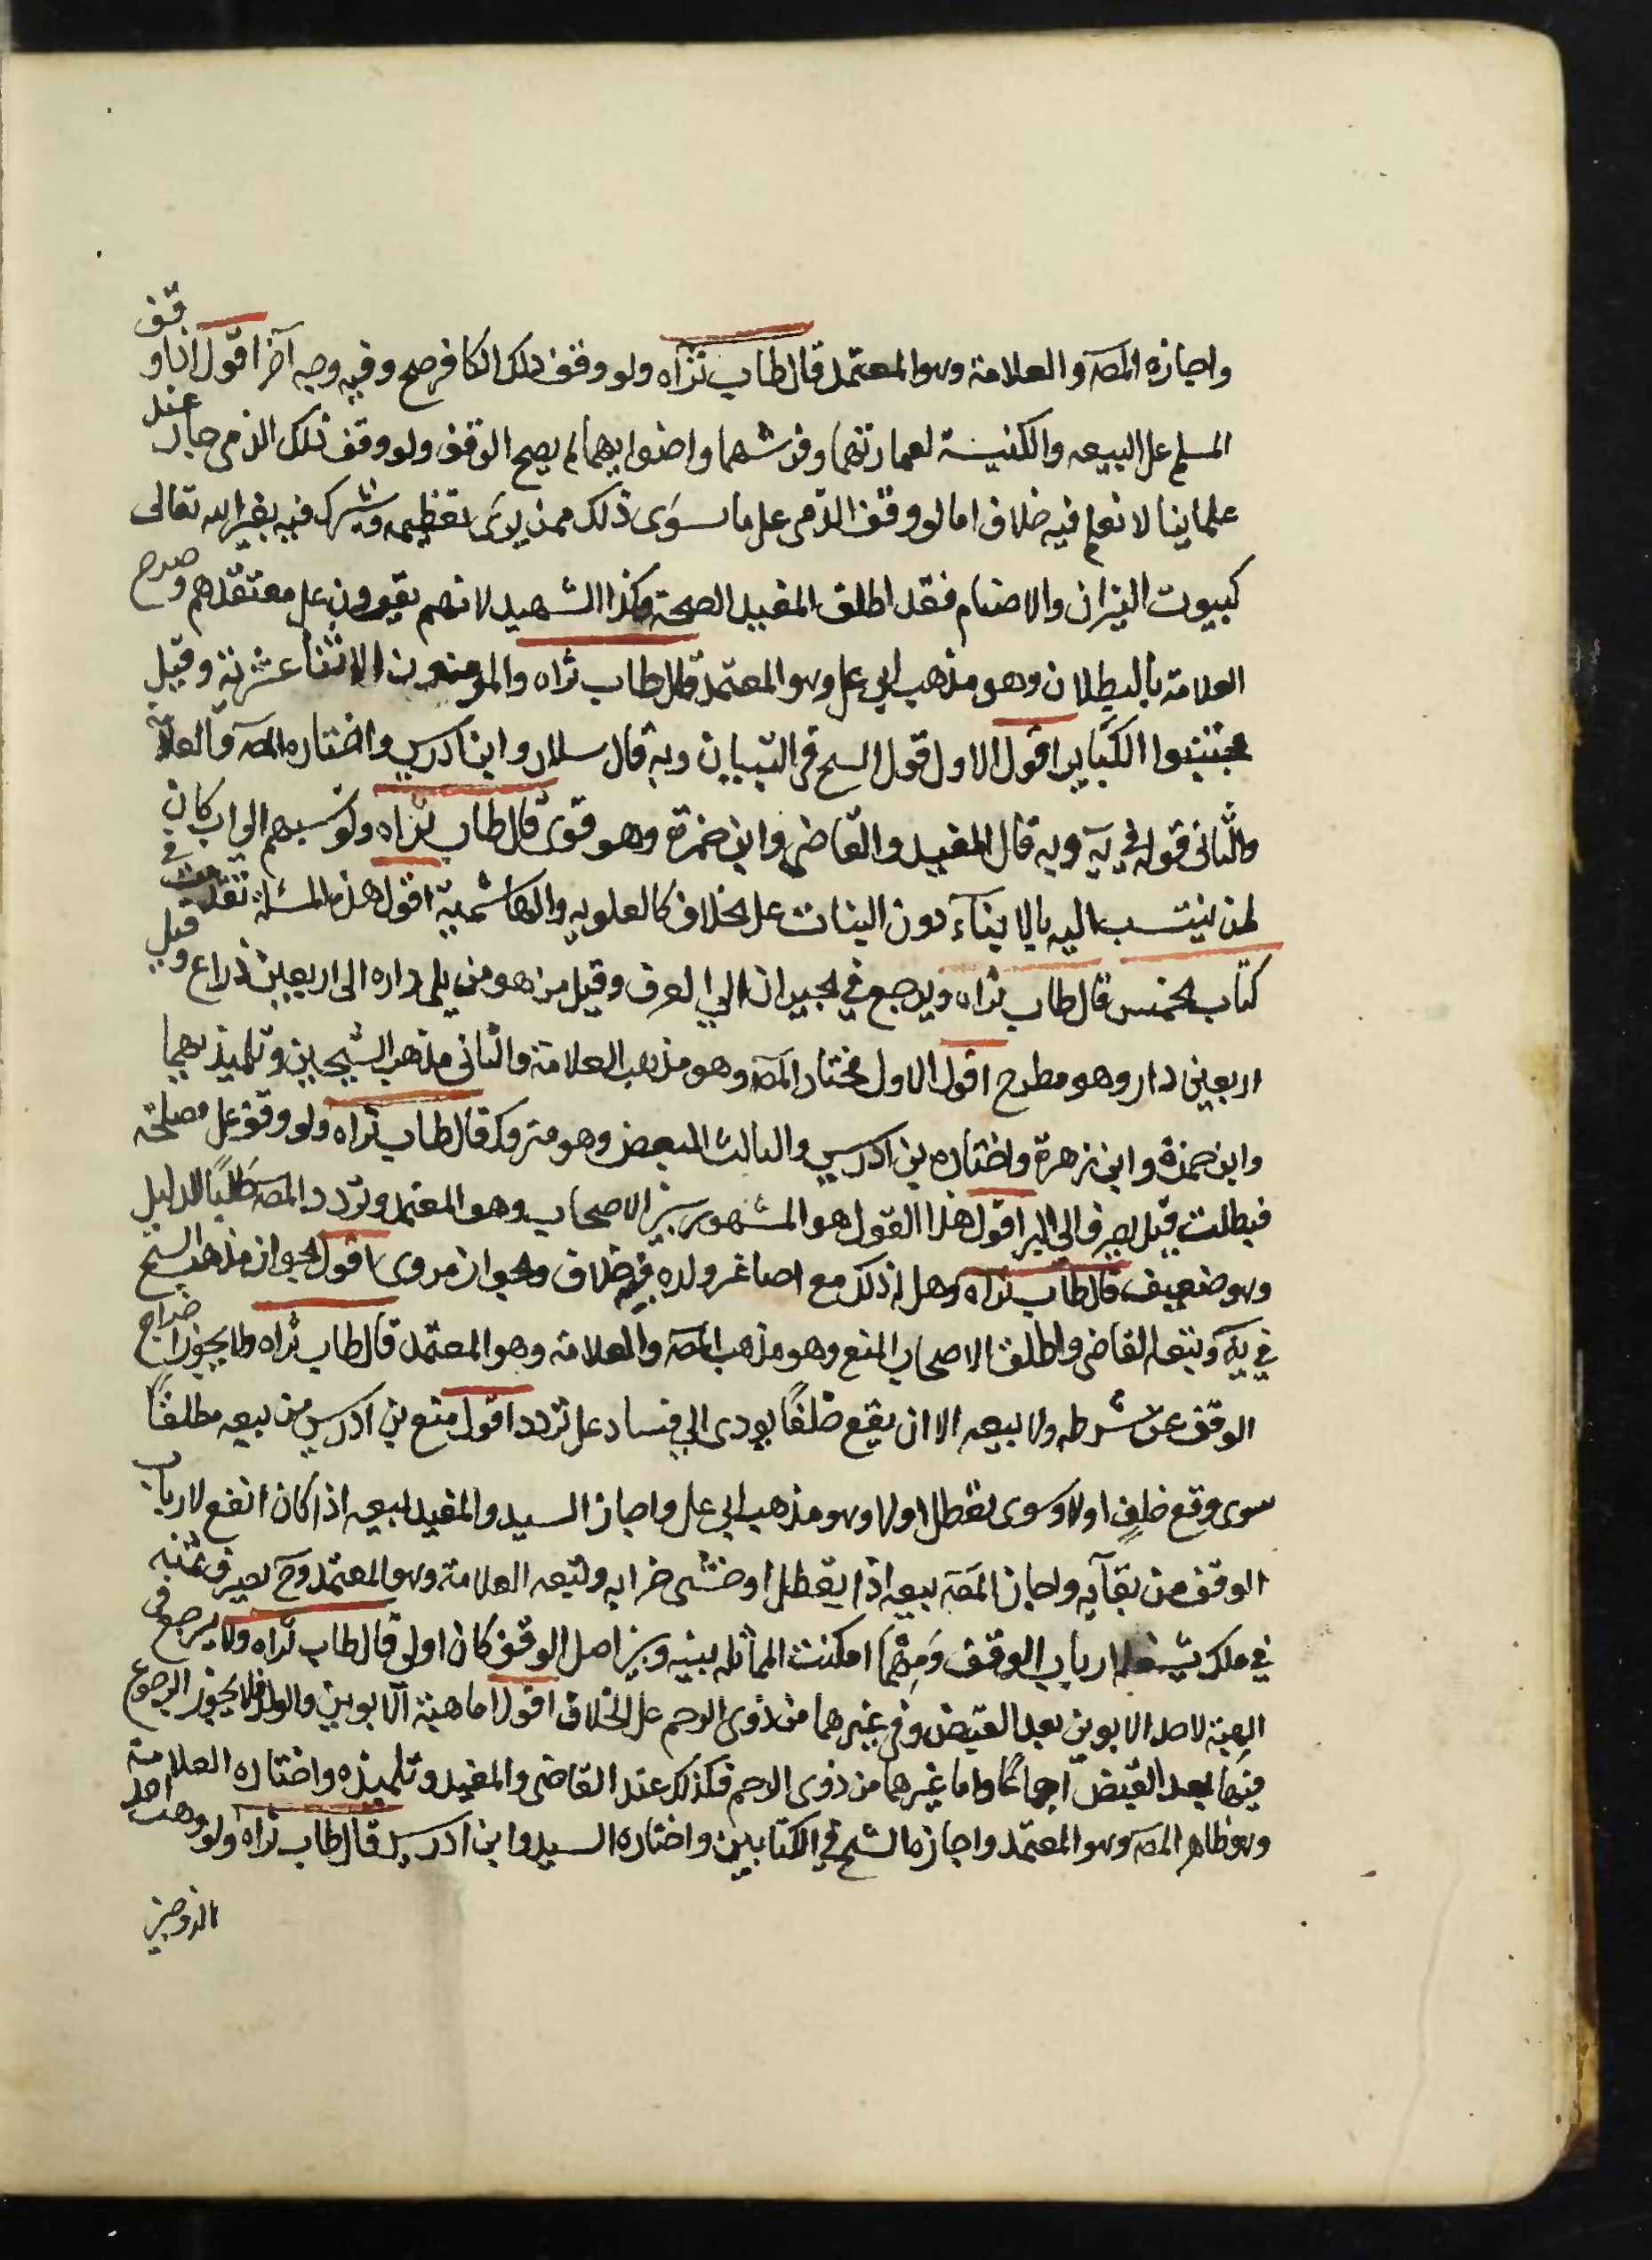 واجازه المصَ والعلامة وهو المعتمد قال طاب ثراه ولو وقف ذلك الكافر صح وفيه وجه آخر اقول اذا وقف
المسلم على البيعه والكنيسة لعمارتهما وفرشهما واضوايهما لم يصح الوقف ولو وقف ذلك الذمى جاز عند
علماينا لا نعلم فيه خلاف اما لو وقف الذمى على ما سوى ذلك ممن يرى تعظيمه ويشرك فيه بغير الله تعالى
كبيوت النيران والاصنام فقد اطلق المفيد الصحة وكذا الشهيد لانهم يقرون على معتقدهم وصرح
العلامة بالبطلان وهو مذهب ابى على وهو المعتمد قال طاب ثراه والمومنون الاثنا عشرية وقيل
مجتنبوا الكباير اقول الاول قول الشيخ فى التبيان وبه قال سلار وابن ادريس واختاره المصَ والعلامة
والثانى قوله فى يَه وبه قال المفيد والقاضى وابن حمزة وهو قوى قال طاب ثراه ولو نسبهم الى اب كان
لمن ينتسب اليه بالابناء دون البنات على الخلاف كالعلويه والهاشمية اقول هذه المسئلة تقدمت فى
كتاب الخمس قال طاب ثراه ويرجع في الجيران الى العرف وقيل من هو من يلى داره الى اربعين ذراع وقيل
اربعين دار وهو مطرح اقول الاول مختار المصَ وهو مذهب العلامة والثانى مذهب الشيخين وتلميذيهما
وابن حمزة وابن زهرة واختاره بن ادريس والثالث لبعض وهو متروك قال طاب ثراه ولو وقف على مصلحة
فبطلت قيل يصرف الى البر اقول هذا القول هو المشهور بين الاصحاب وهو المعتمد وتردد المصَ طلبًا للدليل
وهو ضعيف قال طاب ثراه وهل له ذلك مع اصاغر ولده فيه خلاف والجواز مروى اقول الجواز مذهب الشيخ
في يَه وتبعه القاضى واطلق الاصحاب المنع وهو مذهب المصَ والعلامة وهو المعتمد قال طاب ثراه ولا يجوز اخراج
الوقف عن شرطه ولا بيعه الا ان يقع خلفًا يودى الى فساد على تردد اقول منع بن ادريس من بيعه مطلقًا
سوى وقع خلف اولا وسوى تعطل اولا وهو مذهب ابى على واجاز السيد والمفيد بيعه اذا كان انفع لارباب
الوقف من بقآيه واجاز المصَ بيعه اذا يعطل او خشى خرابه وتبعه العلامة وهو المعتمد وحَ يصرف ثمنه
في ملك ارباب الوقف ومهما امكنت المماثله بينه وبين اصل الوقف كان اولى قال طاب ثراه ولا يرجع فى
الهبة لاحد الابوين بعد القبض وفى غيرهما من ذوى الرحم على الخلاف اقول اما هبة الابوين والولد فلا يجوز الرجوع
فيها بعد القبض اجماعًا واما غيرهما من ذوى الرحم فكذلك عند القاضى والمفيد وتلميذه واختاره العلامة
وهو ظاهر المصَ وهو المعتمد واجازها الشيخ في الكتابين واختاره السيد وابن ادريس قال طاب ثراه ولو وهب احد
الزوجين